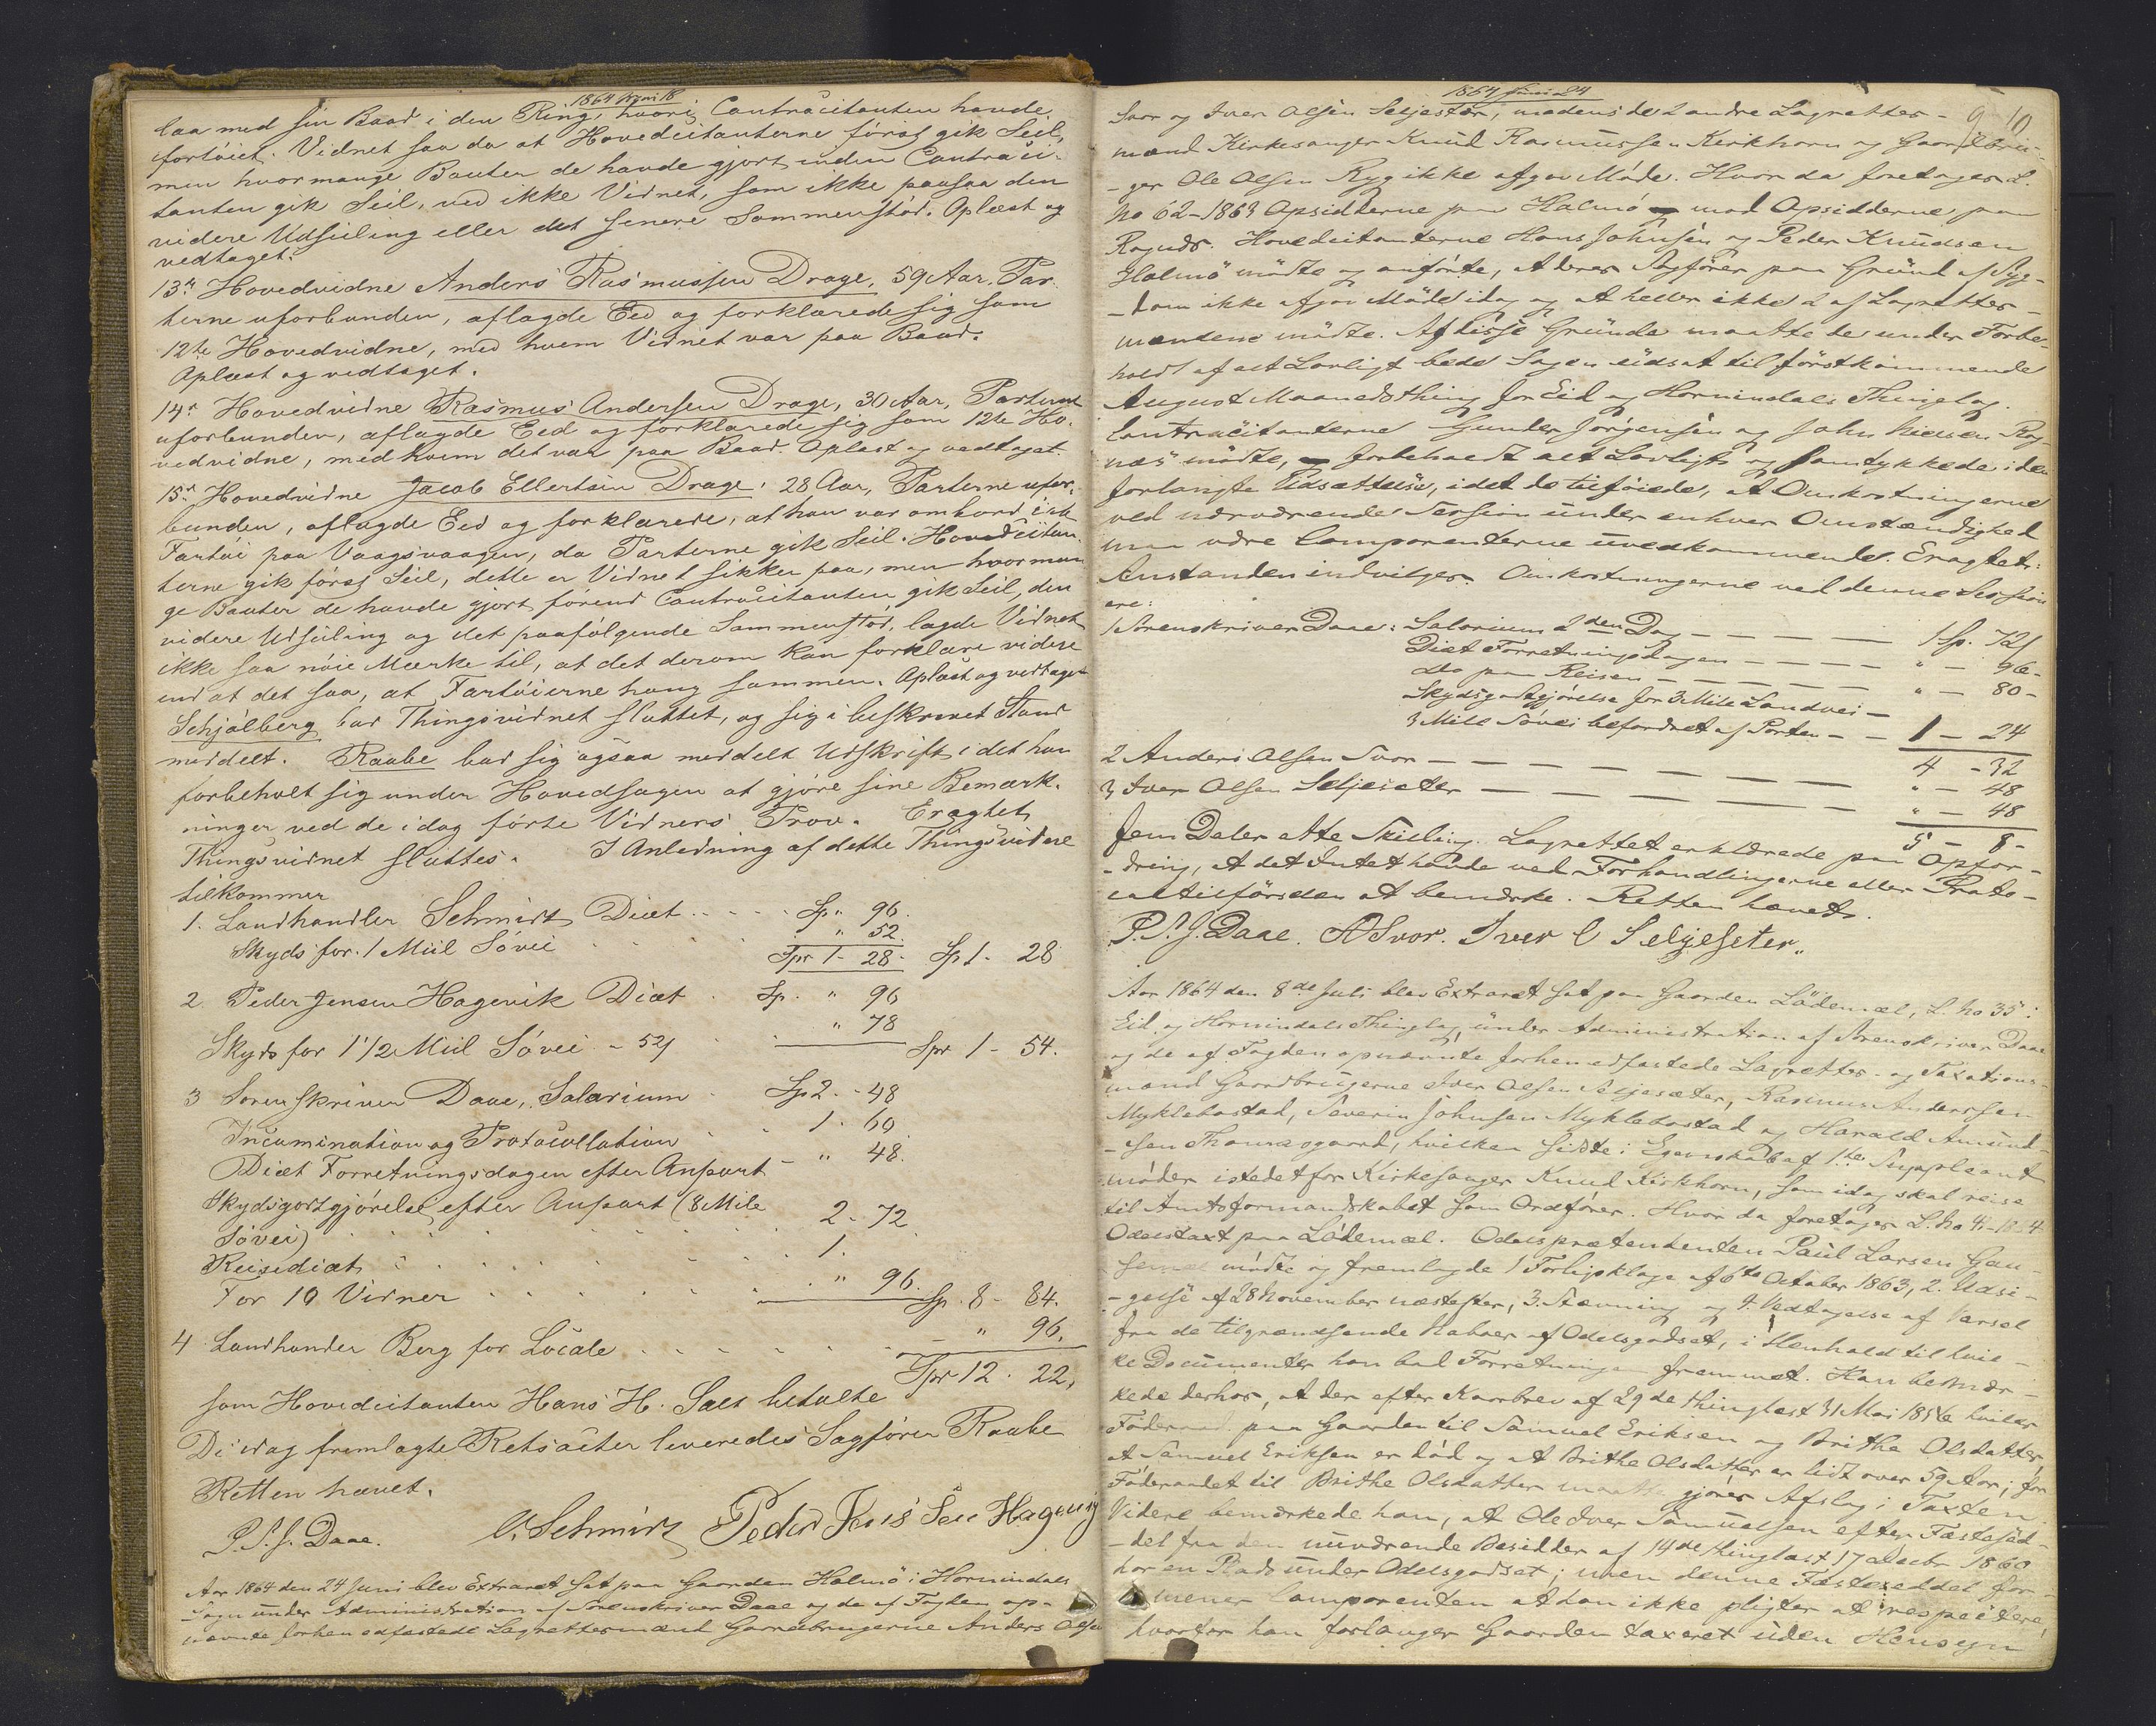 1864 Juni 18
laa med sin Baad i den Ring, hvori Contracitanten havde
fortöiet. Vidnet saa da at Hovedcitanterne först gik Seil,
men hvormange Bauter de havde gjort inden Contraci-
tanten gik Seil, ved ikke Vidnet, som ikke paasaa den
videre Udseiling eller det senere Sammenstöd. Oplæst og
vedtaget.
13de Hovedvidne Anders Rasmussen Drage, 59 Aar, Par-
terne uforbunden, aflagde Eed og forklarede sig som
12te Hovedvidne, med hvem Vidnet var paa Baad.
Oplæst og vedtaget.
14de Hovedvidne Rasmus Andersen Drage, 30 Aar, Parterne
uforbunden, aflagde Eed og forklarede sig som 12te Ho-
vedvidne, med hvem det var paa Baad. Oplæst og vedtaget.
15de Hovedvidne Jacob Ellertsen Drage, 28 Aar, Parterne ufor-
bunden, aflagde Eed og forklarede, at han var ombord i et
Fartöi paa Vaagsvaagen, da Parterne gik Seil. Hovedcitan-
terne gik först Seil, dette er Vidnet sikker paa, men hvorman-
ge Bauter de havde gjort förend Contracitanten gik Seil, den
videre Udseiling og det paafölgende Sammenstöd, lagde Vidnet
ikke saa nöie Mærke til, at det derom kan forklare videre
end at det saa, at Fartöierne hang sammen. Oplæst og vedtaget
Schjölberg bad Thingsvidnet sluttet, og sig i beskrevet Stand
meddelt. Raabe bad sig ogsaa meddelt Udskrift idet han
forbeholt sig under Hovedsagen at gjöre sine Bemærk-
ninger ved de idag förte Vidners Prov. Eragtet
Thingsvidnet sluttes. I Anledning af dette Thingsvidne
tilkommer
1. Landhandler Schmidt Diæt . . . . Sp " 96.
Skyds for 1 Miil Sövei . . . . " 52.
Spr 1 - 28 - Sp 1 - 28
2. Peder Jensen Hagevik Diæt . Sp. " 96
Skyds for 1 1/2 Miil Sövei - 52 . . " 78 Spr 1 - 54.
3 Sorenskriver Daae, Salarium . Sp 2 - 48
Incamination og Protocollation . . 1. 60
Diæt Forretningsdagen efter Anpart - " 48.
Skydsgodtgjörelse efter Anpart (8 Mile
Sövei) . . . . 2 - 72
Reisediæt . . . . 1.
For 10 Vidner . . . . " 96. Sp. 8 - 84.
4 Landhandler Berg for Locale . . . . - " 96.
Spr 12. 22,
som Hovedcitanten Hans H. Sæt betalte
De idag fremlagte Retsacter leveredes Sagförer Raabe
Retten hævet.
P. S. J. Daae. C. Schmidt Peder Jens Sen Hagevig
Aar 1864 den 24 Juni blev Extraret sat paa Gaarden Holmö i Hornindals
Sogn under Administration af Sorenskriver Daae og de af Fogden op-
nævnte forhen edfæstede Lagrettesmænd Gaardbrugerne Anders Olsen
1864 Juni 24
9 10
Svor og Iver Olsen Seljesæter, medens de 2 andre Lagrettes-
mænd Kirkesanger Knud Rasmussen Kirkhorn og Gaardbru-
-ger Ole Olsen Ryg ikke afgav Möde. Hvor da foretages L.
No 62 - 1863 Opsidderne paa Holmö mod Opsidderne paa
Rognæs. Hovedcitanterne Hans Johnsen og Peder Knudsen
Holmö mödte og anförte, at deres Sagförer paa Grund af Syg-
-dom ikke afgav Möde idag og at heller ikke 2 af Lagrettes-
mændene mödte. Af disse Grunde maatte de under Forbe-
hold af alt Lovligt bede Sagen udsat til förstkommende
August Maanedsthing for Eid og Hornindals Thinglag.
Contracitanterne Gunder Jörgensen og John Nielsen Rog-
næs mödte, forbeholdt alt Lovligt og samtykkede i den
forlangte Udsættelse, idet de tilföiede, at Omkostningerne
ved nærværende Session under enhver Omstændighed
maa være Comparenterne uvedkommende. Eragtet:
Anstanden indvilges. Omkostningerne ved denne Session
ere:
1 Sorenskriver Daae: Salarium 2den Dag - - - 1 Sp. 72 s
Diæt Forretningsdagen - - - - " - 96 -
do paa Reisen - - - - " - 80 -
Skydsgodtgjörelse for 3 Mile Landvei -
3 Mile Sövei befordret af Parten - - 1 - 24
4 - 32
2 Anders Olsen Svor - - - - " - 48
3 Iver Olsen Seljesæter - - - - " - 48
5 - 8 -
Fem Daler otte Skilling. Lagrettet erklærede paa Opfor-
-dring, at det Intet havde ved Forhandlingerne eller Proto-
coltilförslen at bemærke. Retten hævet.
P. S. J. Daae. A O Svor. Iver O Seljeseter.
Aar 1864 den 8de Juli blev Extraret sat paa Gaarden Lödemæl, L. No 35 i
Eid og Hornindals Thinglag, under Administration af Sorenskriver Daae
og de af Fogden opnævnte forhen edfæstede Lagrettes- og Taxations-
mænd Gaardbrugerne Iver Olsen Seljesæter, Rasmus Andersen
Myklebostad, Severin Johnsen Myklebostad og Harald Amund-
-sen Thomasgaard, hvilken sidste i Egenskab af 1ste Suppleant
möder istedetfor Kirkesanger Knud Kirkhorn, som idag skal reise
til Amtsformandskabet som Ordförer. Hvor da foretages L. No 41 - 1864
Odelstaxt paa Lödemæl. Odelsprætendenten Paul Larsen
mödte og fremlagde 1 Forligsklage af 6te October 1863, 2. Udsi-
-gelse af 28 November næstefter, 3. Stævning og 4. Vedtagelse af Varsel
fra de tilgrændsende Naboer af Odelsgodset, i Henhold til hvil-
ke Documenter han bad Forretningen fremmet. Han bemær-
kede derhos, at der efter Kaarbrev af 29de thinglæst 31 Mai 1856 hviler
Föderaad paa Gaarden til Samuel Eriksen og Brithe Olsdatter,
at Samuel Eriksen er död og at Brithe Olsdatter er lidt over 59 Aar; for
Föderaadet til Brithe Olsdatter maatte gjöres Afslag i Taxten.
Videre bemærkede han, at Ole Iver Samuelsen efter Fæstesed-
-del fra den nuværende Besidder af 14de thinglæst 17 Decbr 1860
har en Plads under Odelsgodset; men denne Fæsteseddel for-
mener Comparenten at han ikke pligter at respectere,
hvorfor han forlanger Gaarden taxeret uden Hensyn